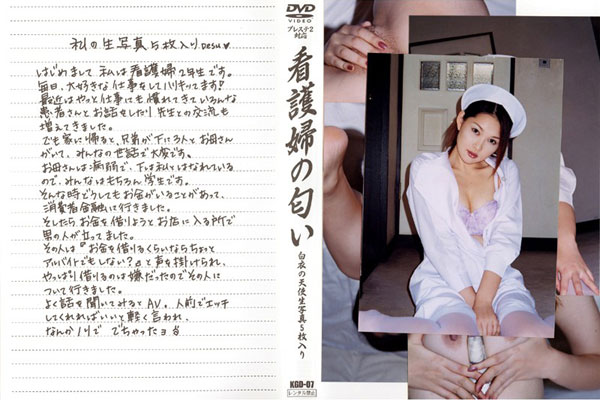 私の生写真5枚入りDESU♥
はじめまして 私は看護婦2年生です。
毎日、大好きな仕事をしてハリキッてます?
最近はやっと仕事にも慣れてきていろんな
患者さんとお話をしたり先生との交流も
増えてきました。
でも家に帰ると、兄弟が下に3人とお母さん
がいて、みんなの世話で大変です。
お母さんは病弱で、下は私とはなれている
ので、みんなはもちろん学生です。
そんな時どうしてもお金がいることがあって、
消費者金融に行きました。
そしたらお金を借りようとお店に入る所で
男の人が立ってました。
その人は『お金を借りるくらいならちょっと
アルバイトでもしない?』と声を掛けられ、
やっぱり借りるのは嫌だったのでその人に
ついて行きました。
よく話を聞いてみるとAV。人前でエッチ
してくれればいいと軽く言われ、
なんかノリで でちゃったヨ
DVD
VIDEO
プレステ2
対応
看護婦の匂い
白衣の天使生写真5枚入り
KGD-07
レンタル禁止